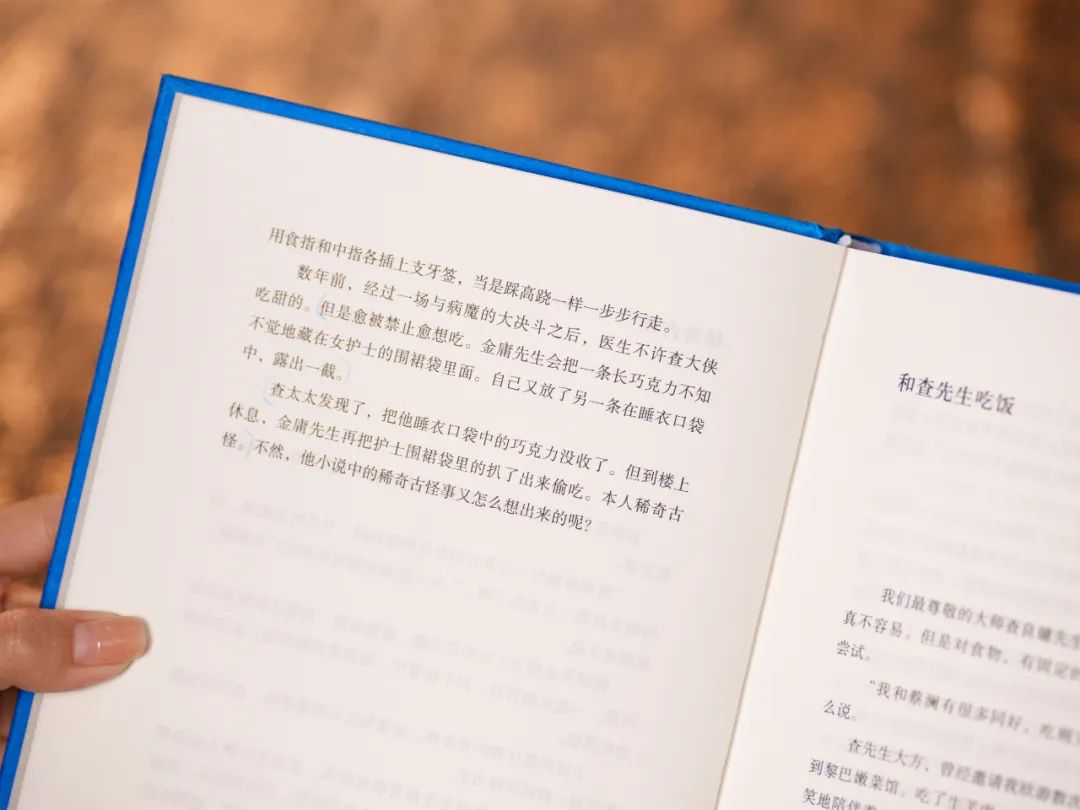 用食指和中指各插上支牙签，当是踩高跷一样一步步行走。
数年前，经过一场与病魔的大决斗之后，医生不许查大侠
吃甜的。但是愈被禁止愈想吃。金庸先生会把一条长巧克力不知
不觉地藏在女护士的围裙袋里面。自己又放了另一条在睡衣口袋
中，露出一截。
查太太发现了，把他睡衣口袋中的巧克力没收了。但到楼上
休息，金庸先生再把护士围裙袋里的扒了出来偷吃。本人稀奇古
怪。不然，他小说中的稀奇古怪事又怎么想出来的呢？
和查先生吃饭
我们最尊敬的大师查良镛先生
真不容易。但是对食物，有固定的
尝试。
“我和蔡澜有很多同好，吃
么说。
查先生大方，曾经邀请我欧游数
到黎巴嫩菜馆。吃了生羊
笑地陪伴